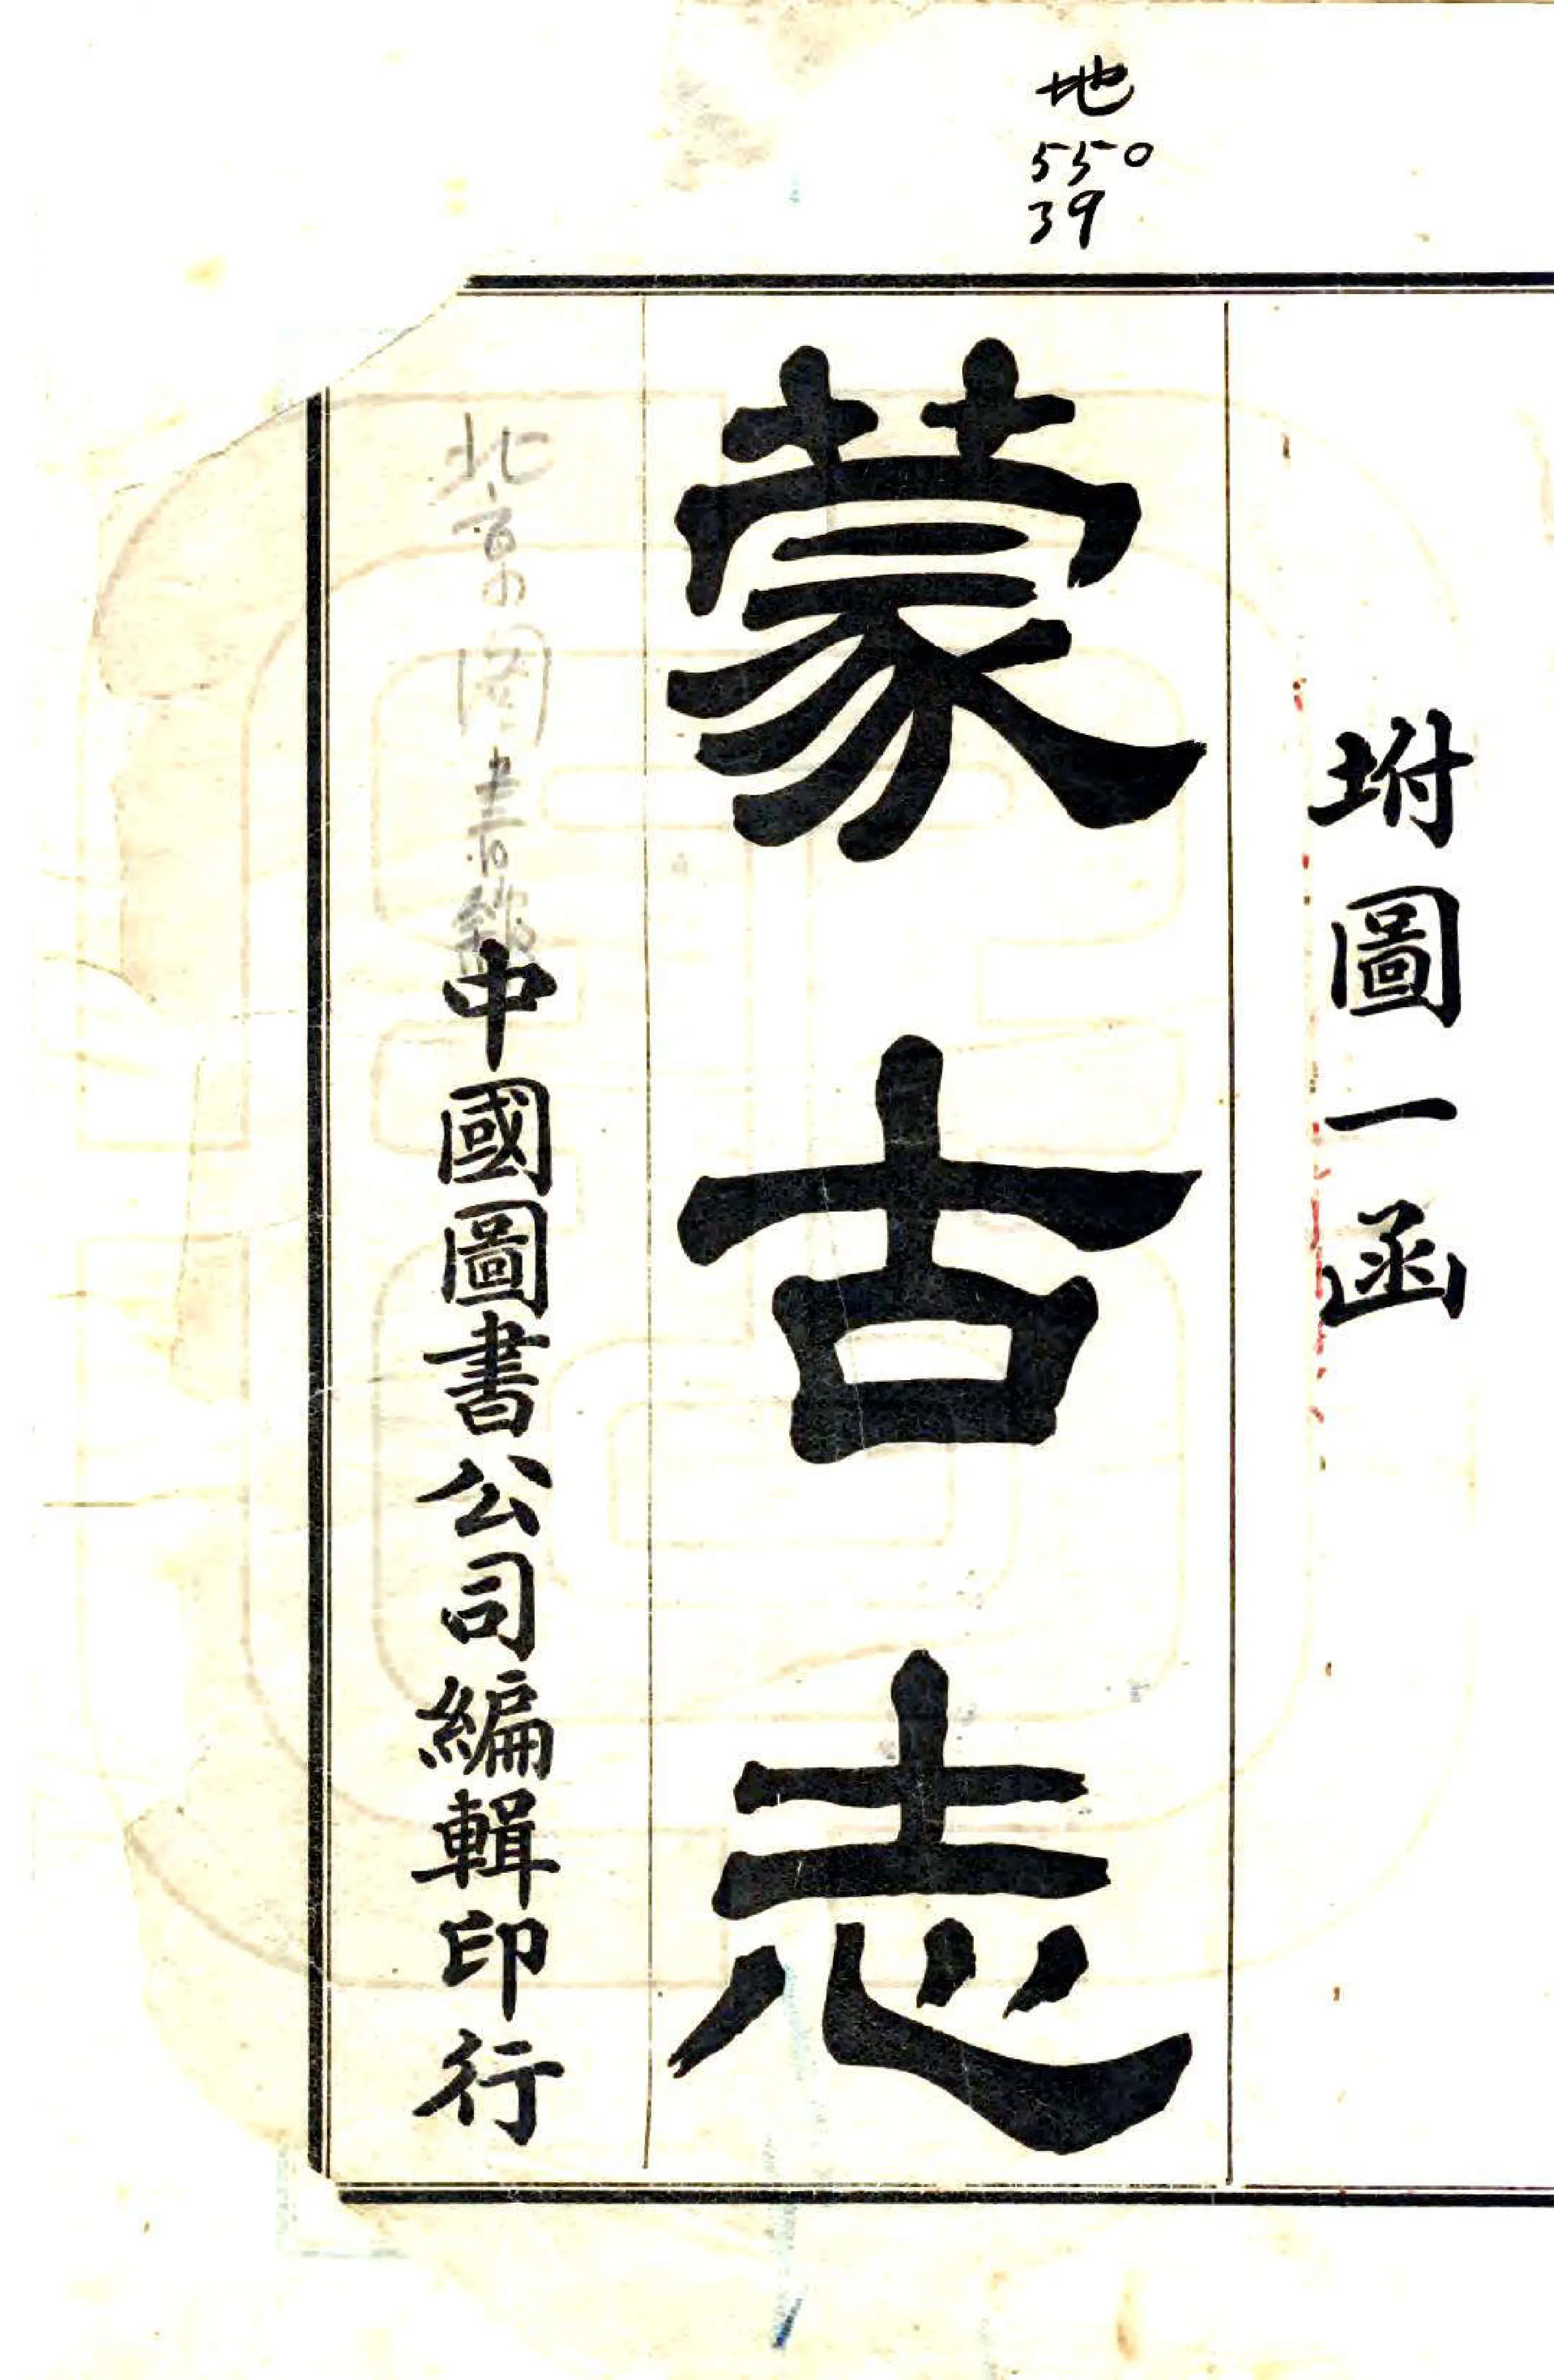 地
550
39
坿圖一函
蒙古志
中國圖書公司編輯印行
北京图书館